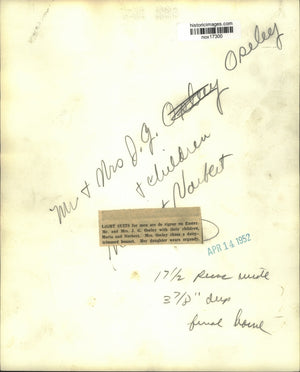 historicimages.com
nox17300
Mr + Mrs J. G. Opsley
+ children
+ Norbert
LIGHT SUITS for men are de rigeur on Easter.
Mr. and Mrs. J. G. Opsley with their children,
Maria and Norbert. Mrs. Opsley chose a daisy-
trimmed bonnet. Her daughter wears organdy.
APR 14 1952
17 1/2 picas wide
3 7/8" deep
final home